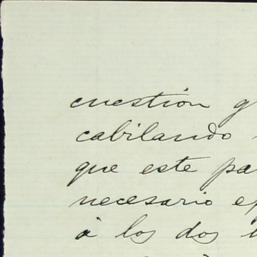 cuestión
cabilando
que este
necesario
á los dos